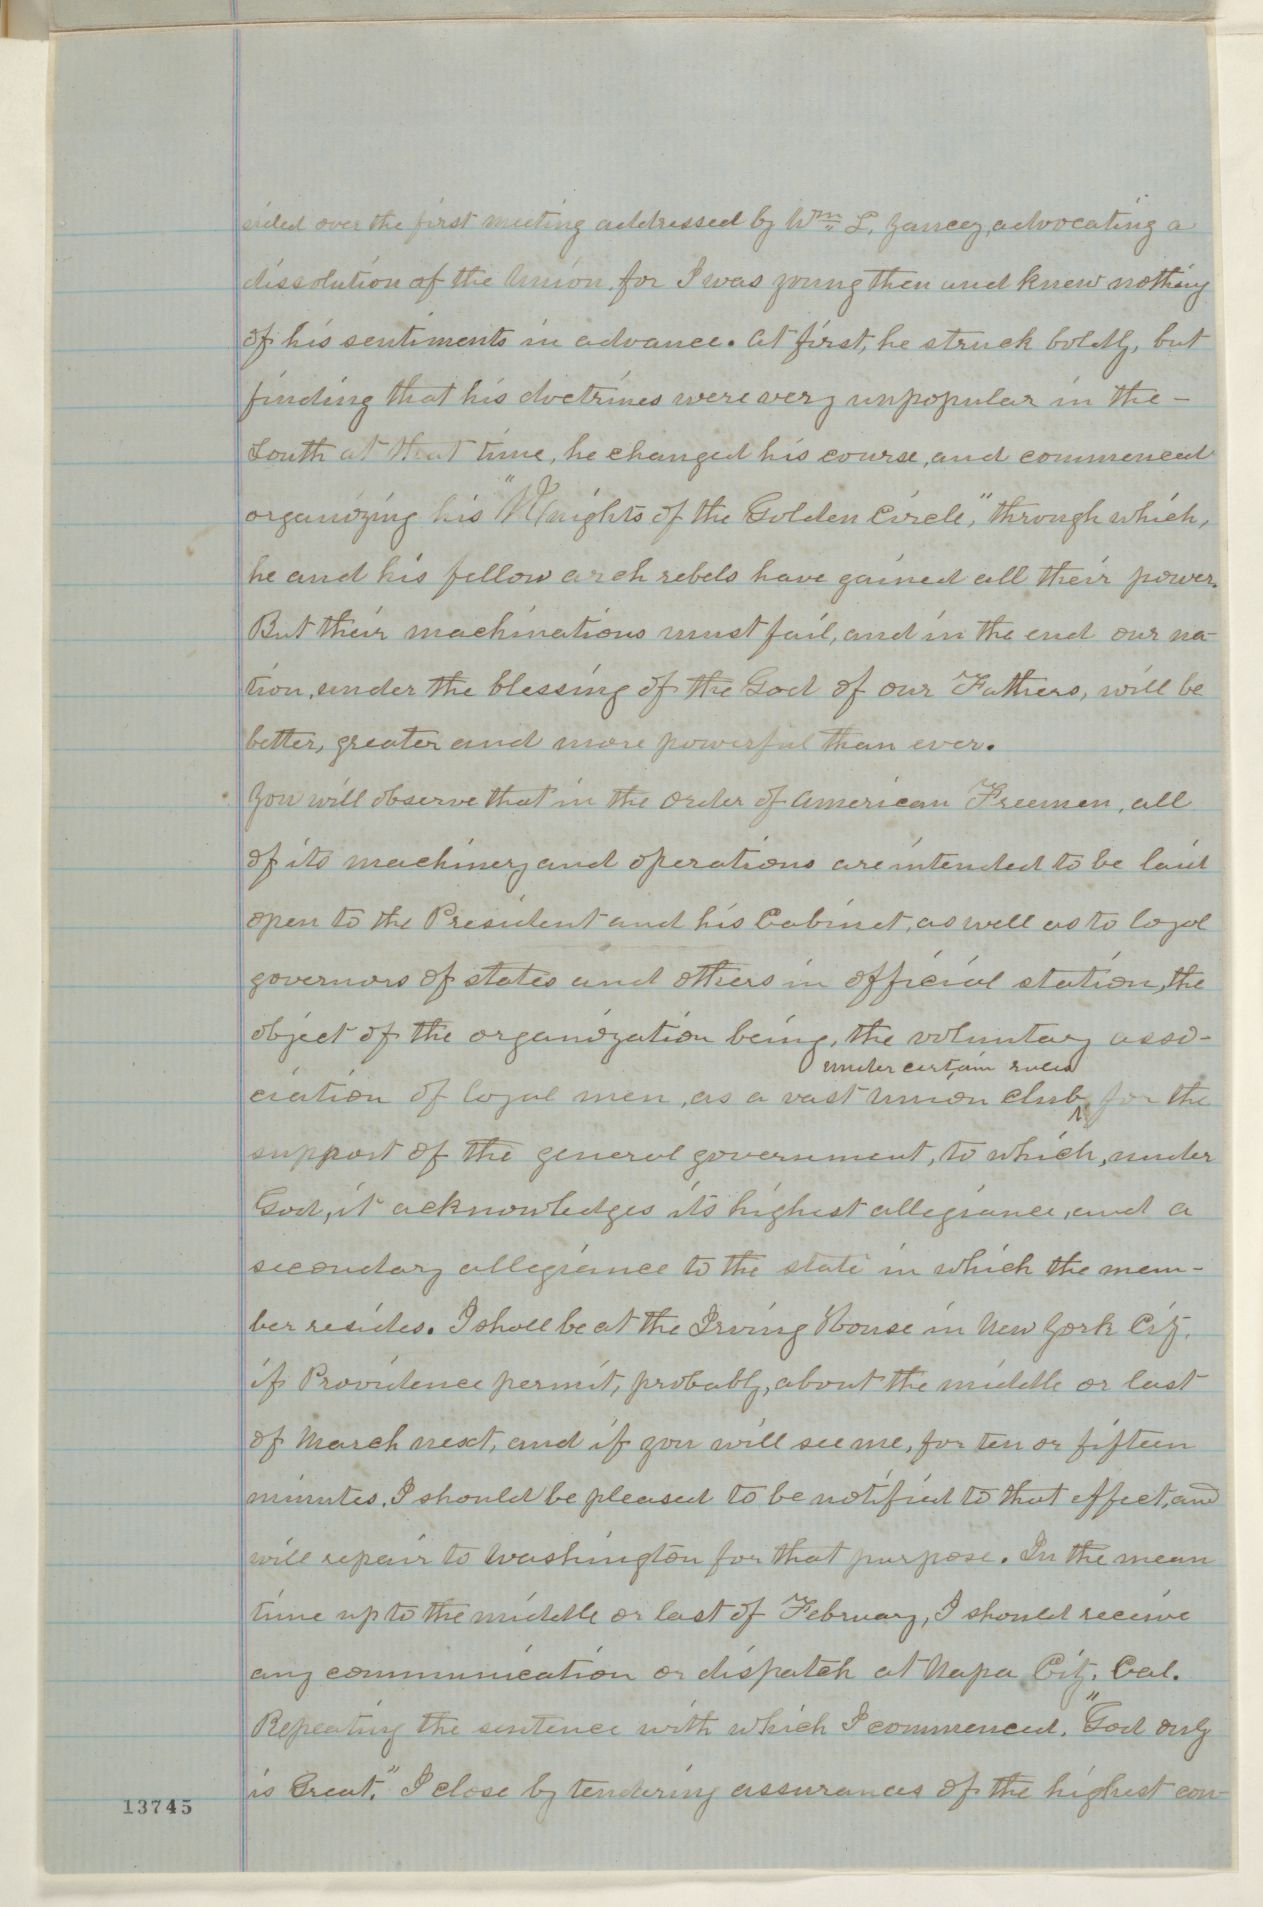 sided over the first meeting addressed by Wm L. Yancey, advocating a
dissolution of the Union, for I was young then and knew nothing
of his sentiments in advance. At first, he struck boldly, but
finding that his doctrines were very unpopular in the -
South at that time, he changed his course, and commenced
organizing his "Knights of the Golden Circle," through which,
he and his fellow arch rebels have gained all their power.
But their machinations must fail, and in the end our na-
tion, under the blessing of the God of our Fathers, will be
better, greater and more powerful than ever.
You will observe that in the Order of American Freemen, all
of its machinery and operations are intended to be laid
open to the President and his Cabinet, as well as to loyal
governors of states and others in official station, the
object of the organization being, the voluntary asso-
under certain rules
ciation of loyal men, as a vast Union Club, for the
support of the general government, to which, under
God, it acknowledges its highest allegiance, and a
secondary allegiance to the state in which the mem-
ber resides. I shall be at the Irving House in New York City,
if Providence permit, probably, about the middle or last
of March next, and if you will see me, for ten or fifteen
minutes, I should be pleased to be notified to that effect, and
will repair to Washington for that purpose. In the mean
time up to the middle or last of February, I should receive
any communication or dispatch at Napa City, Cal.
Repeating the sentence with which I commenced, "God only
is Great," I close by tendering assurances of the highest con-
13745